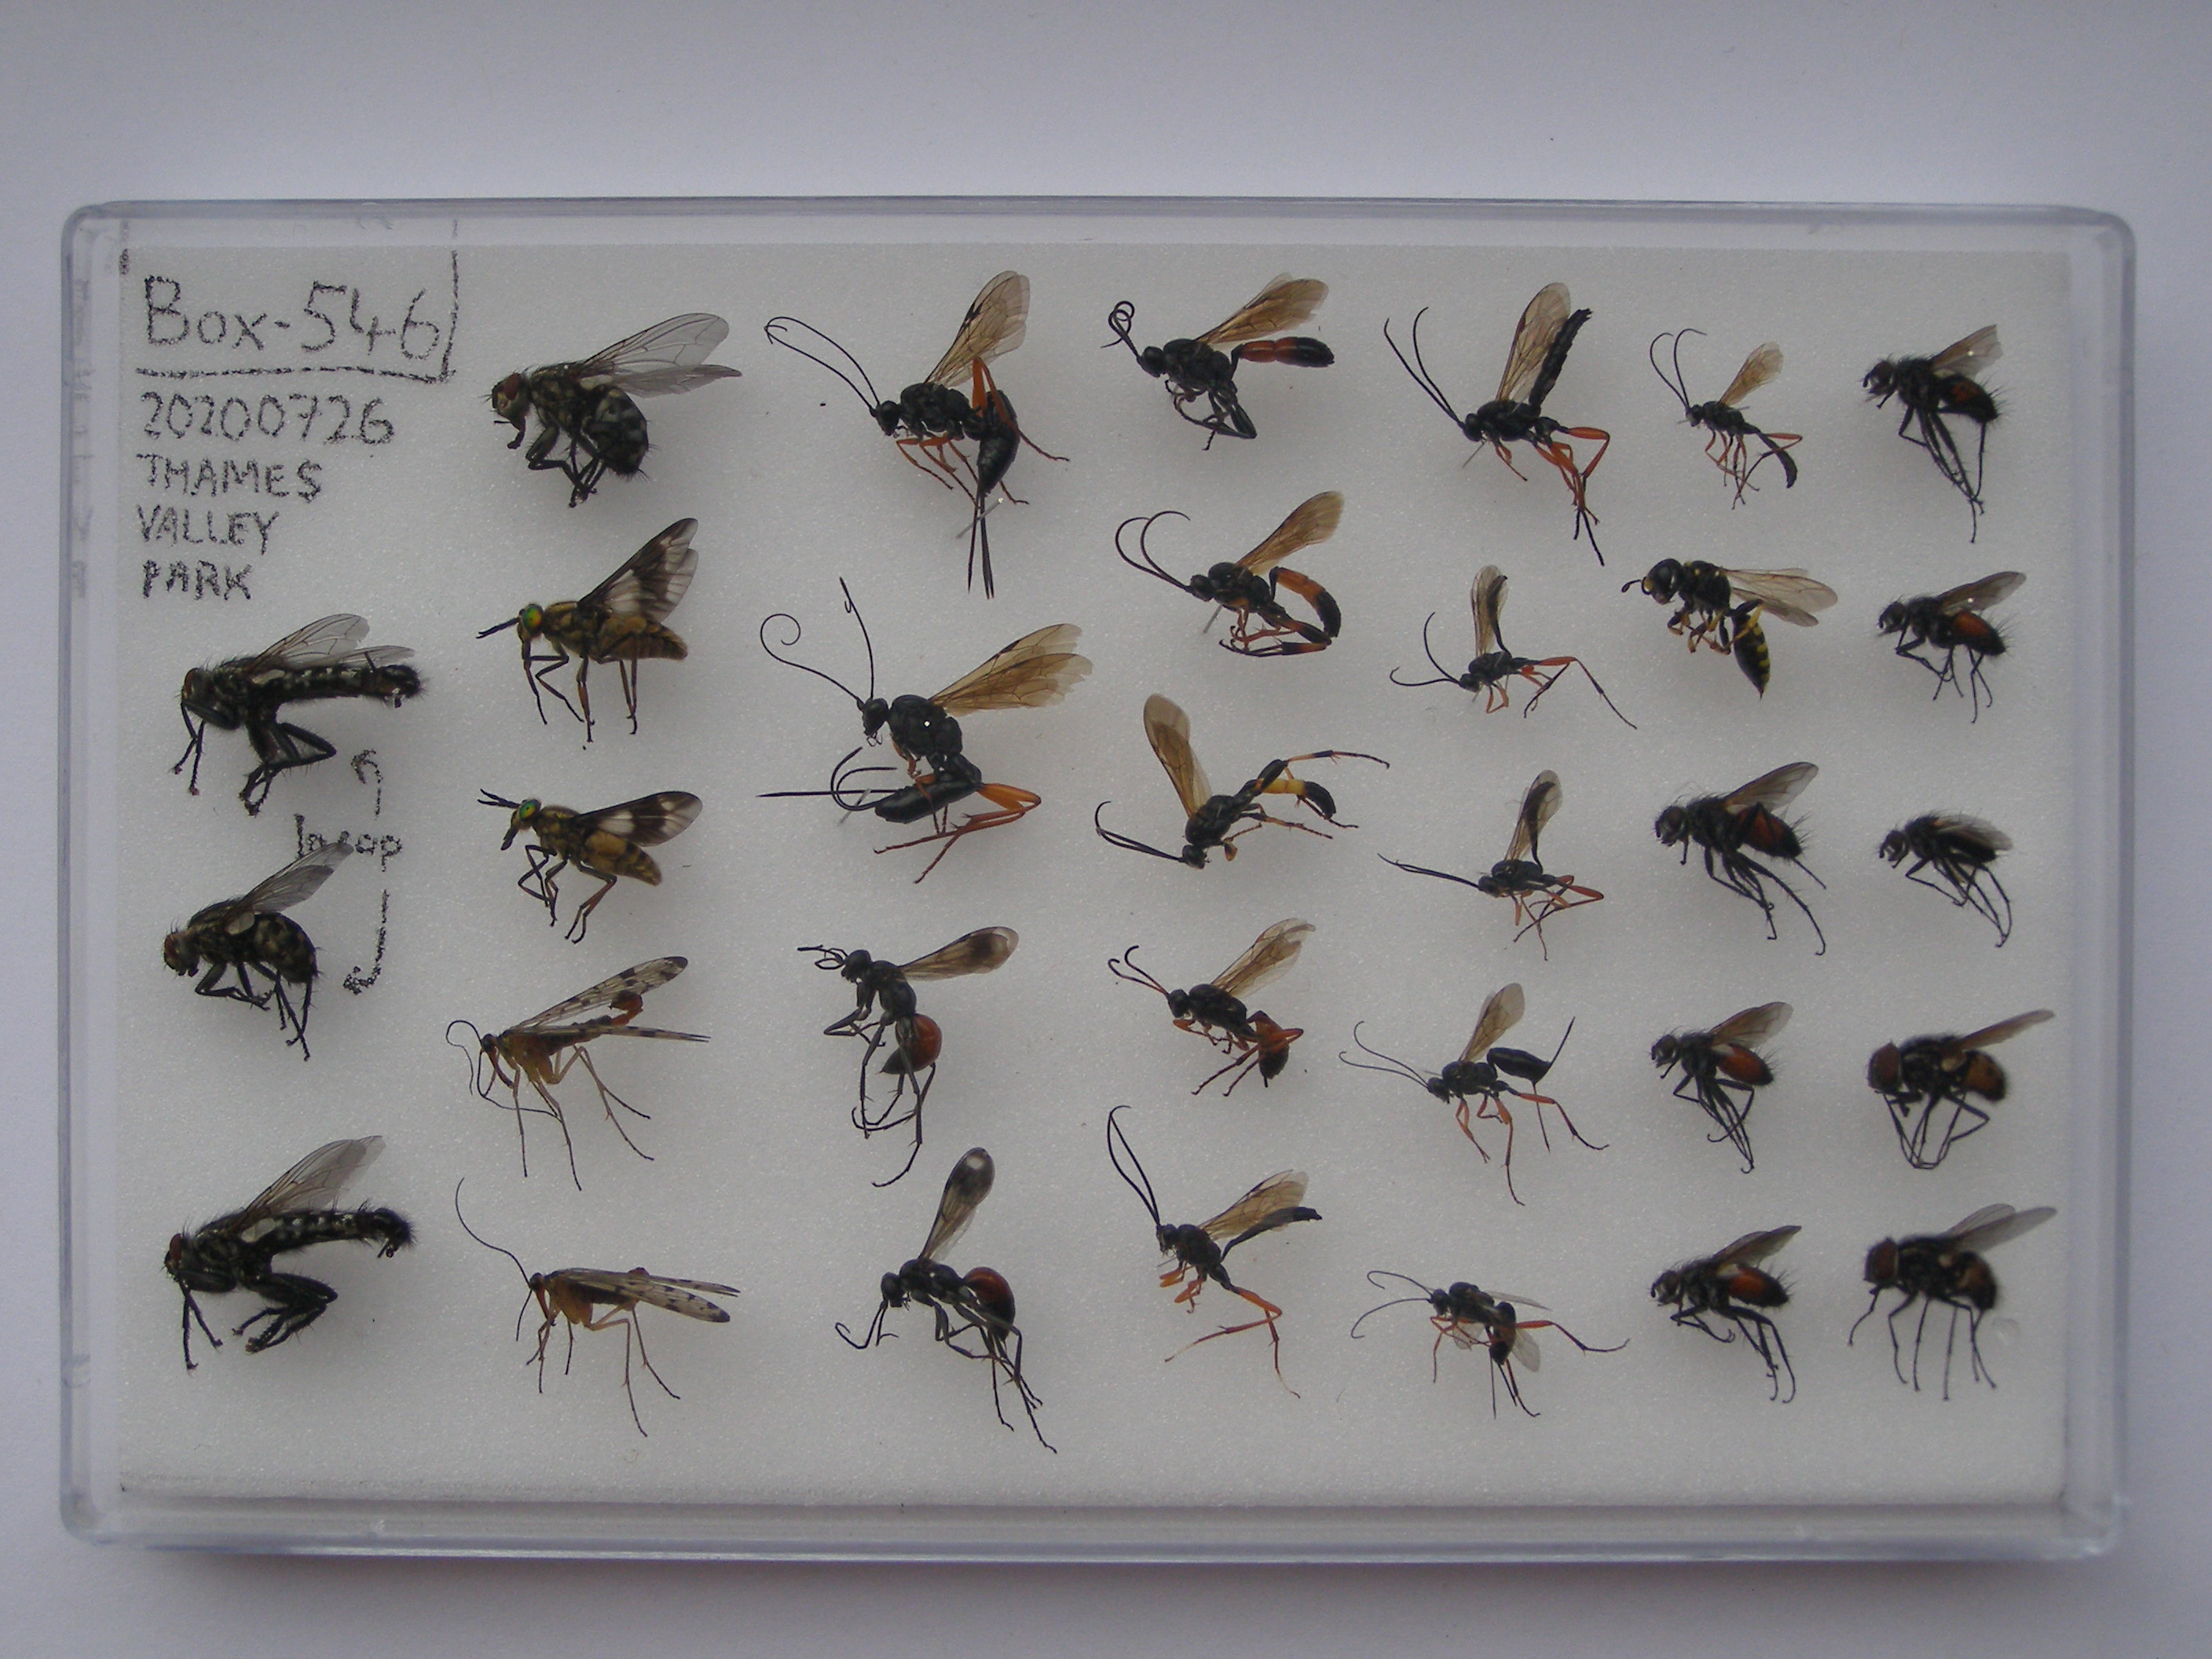 Box-546
20200726
THAMES
VALLEY
PARK